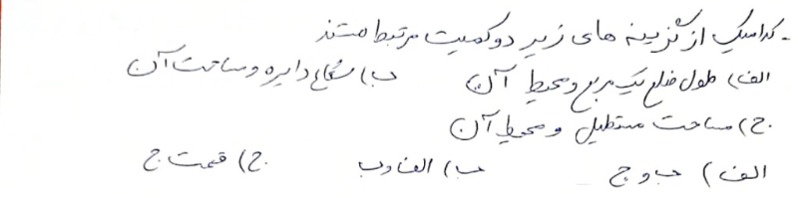 . کدامیک از گزینه های زیر دو کمیت مرتبط هستند
الف) طول ضلع یک مربع و محیط آن ب) شعاع دایره و مساحت آن
ج) مساحت مستطیل و محیط آن
الف) ب و ج ب) الف و ب ج) قسمت ج